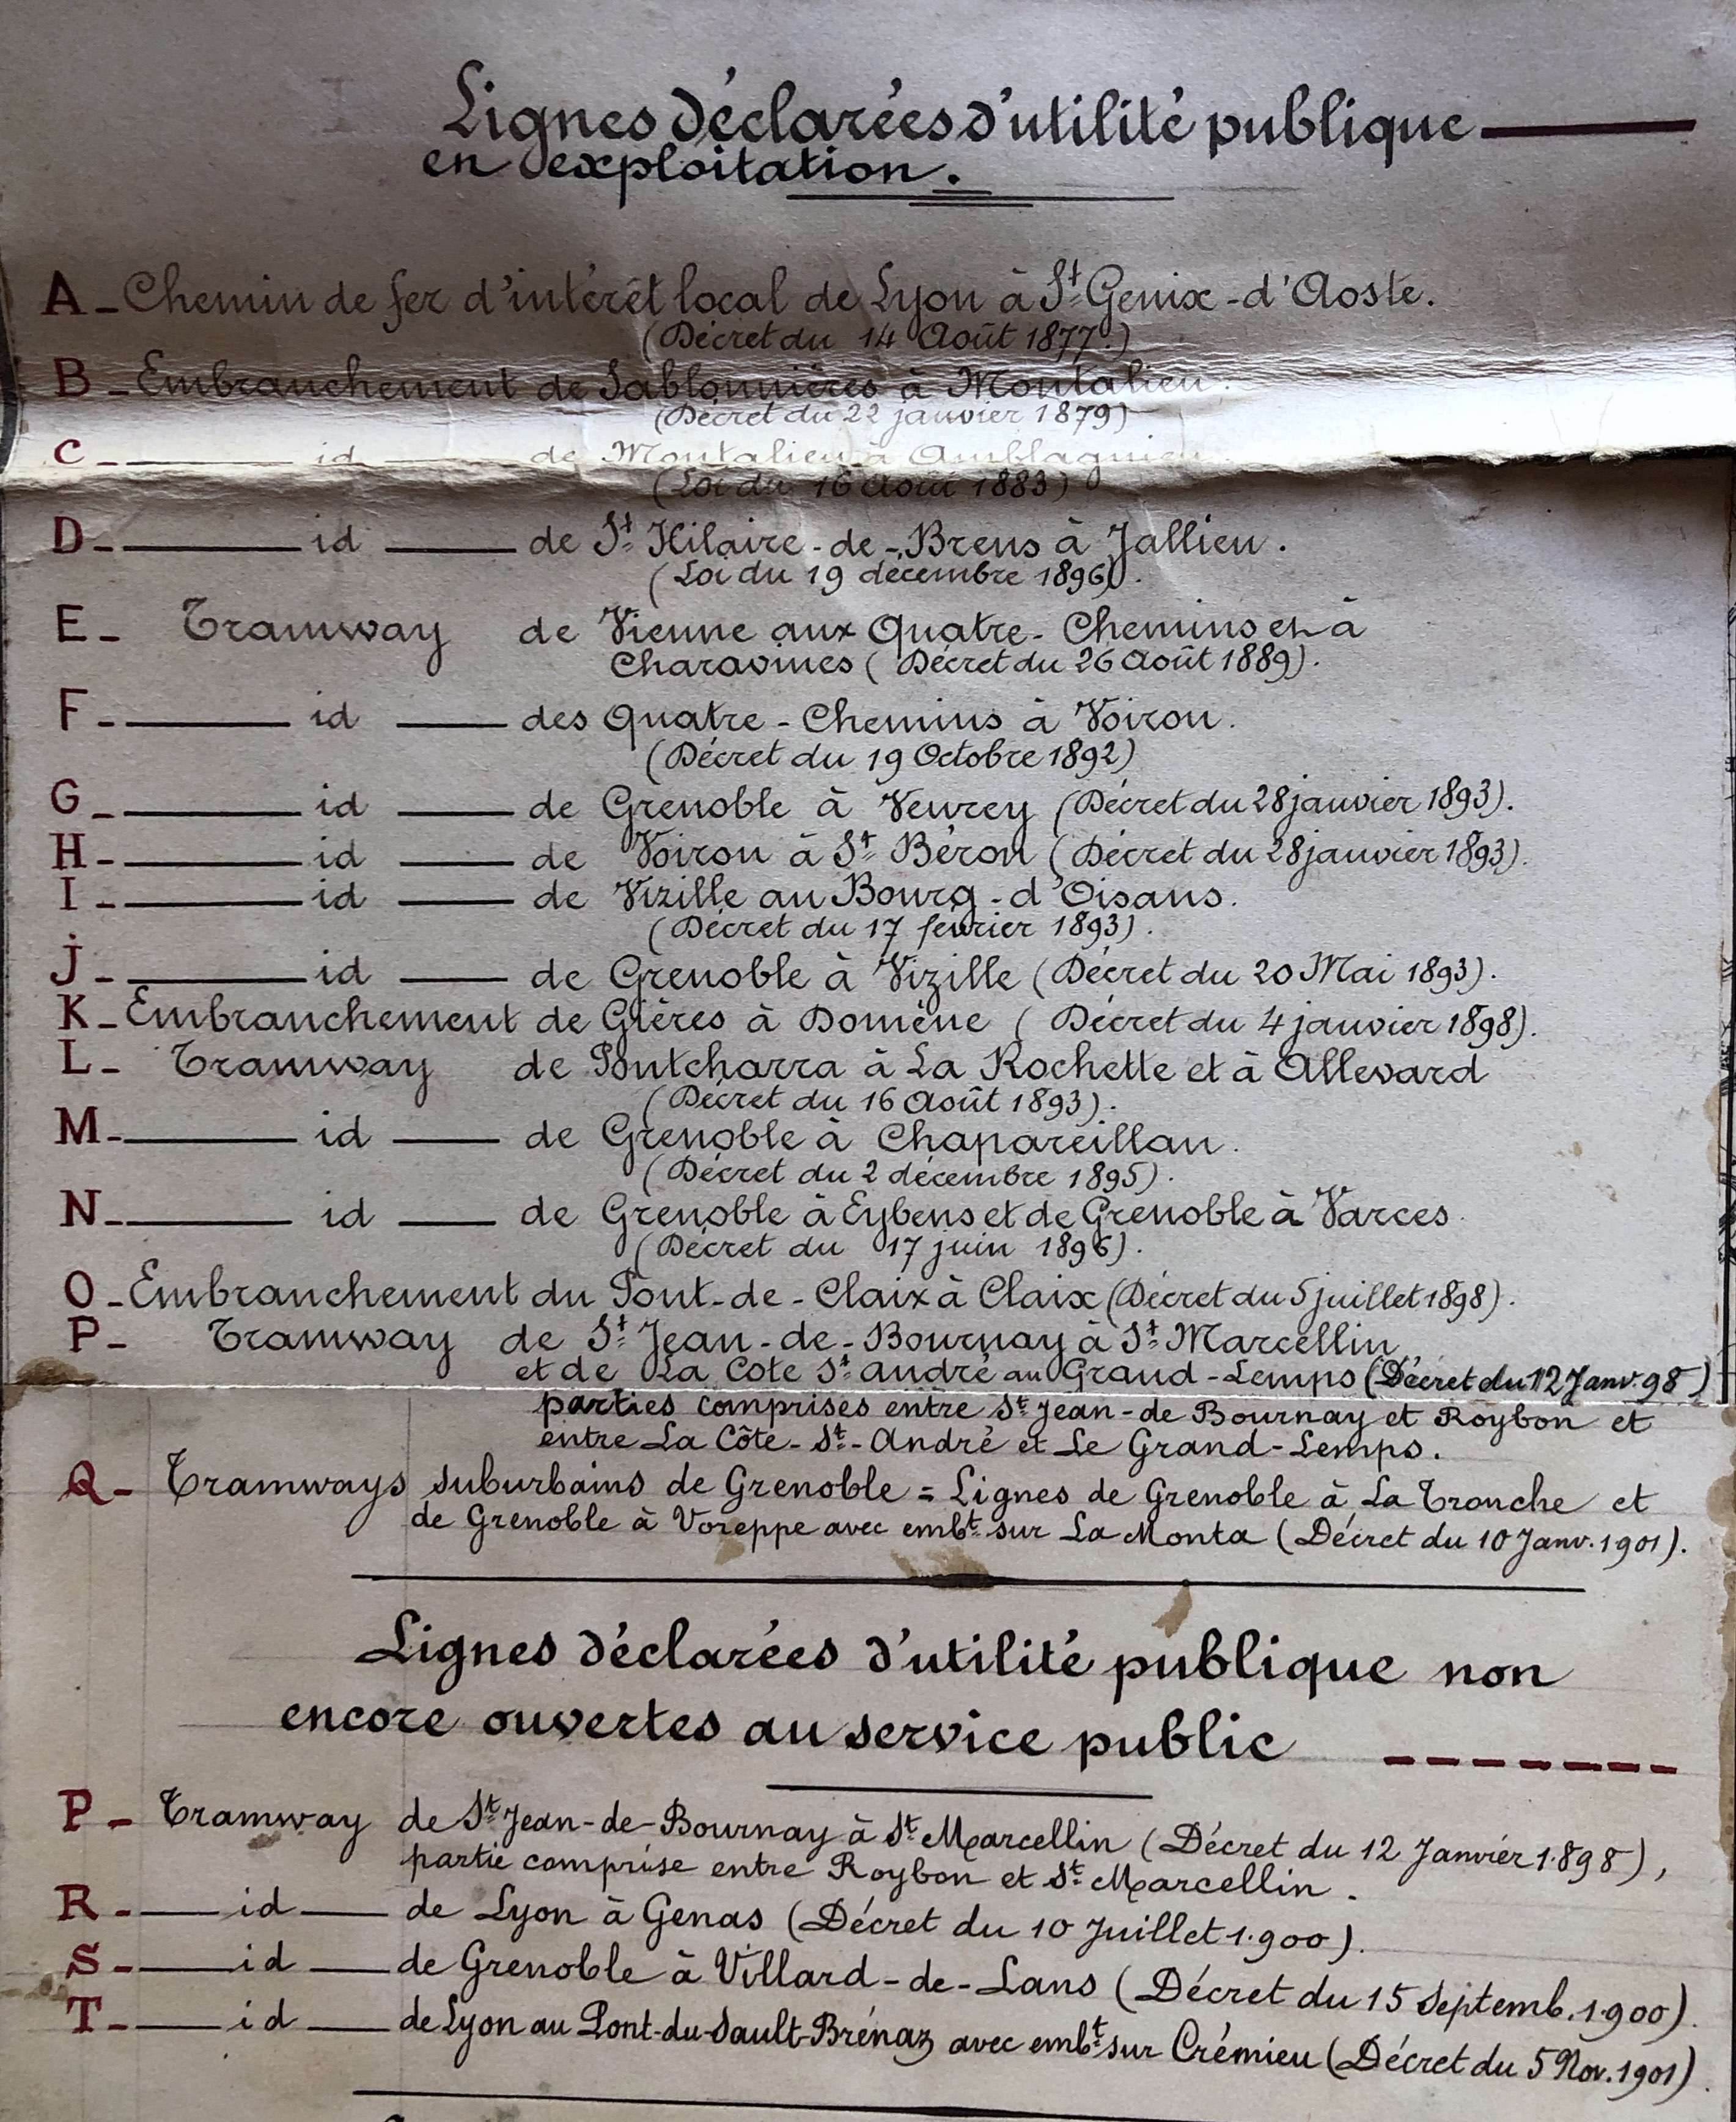 Lignes déclarées d'utilité publique
en exploitation.
A - Chemin de fer d'intérêt local de Lyon à St Genix-d'Aoste.
(Décret du 14 Août 1877.)
B - Embranchement de Sablonnières à Montalieu.
(Décret du 22 janvier 1879)
C - id de Montalieu à Amblagnieu.
(Loi du 16 Août 1883)
D - id de St Hilaire-de-Brens à Jallieu.
(Loi du 19 décembre 1896).
E - Tramway de Vienne aux Quatre-Chemins et à
Charavines (Décret du 26 Août 1889).
F - id des Quatre-Chemins à Voiron.
(Décret du 19 Octobre 1892)
G - id de Grenoble à Veurey (Décret du 28 janvier 1893).
H - id de Voiron à St Béron (Décret du 28 janvier 1893).
I - id de Vizille au Bourg-d'Oisans.
(Décret du 17 février 1893).
J - id de Grenoble à Vizille (Décret du 20 Mai 1893).
K - Embranchement de Gières à Domène (Décret du 4 janvier 1898).
L - Tramway de Pontcharra à La Rochette et à Allevard
(Décret du 16 Août 1893).
M - id de Grenoble à Chapareillan.
(Décret du 2 décembre 1895).
N - id de Grenoble à Eybens et de Grenoble à Varces.
(Décret du 17 juin 1896).
O - Embranchement du Pont-de-Claix à Claix (Décret du 5 juillet 1898).
P - Tramway de St Jean-de-Bournay à St Marcellin
et de La Cote St André au Grand-Lemps (Décret du 12 Janv. 98)
parties comprises entre St Jean-de Bournay et Roybon et
entre La Côte-St-André et Le Grand-Lemps.
Q - Tramways suburbains de Grenoble = Lignes de Grenoble à La Tronche et
de Grenoble à Voreppe avec embt sur La Monta (Décret du 10 Janv. 1901).
Lignes déclarées d'utilité publique non
encore ouvertes au service public
P - Tramway de St Jean-de-Bournay à St Marcellin (Décret du 12 Janvier 1.898),
partie comprise entre Roybon et St Marcellin.
R - id de Lyon à Genas (Décret du 10 Juillet 1.900).
S - id de Grenoble à Villard-de-Lans (Décret du 15 Septemb. 1.900).
T - id de Lyon au Pont-du-Sault-Brénaz avec embt sur Crémieu (Décret du 5 Nov. 1901).